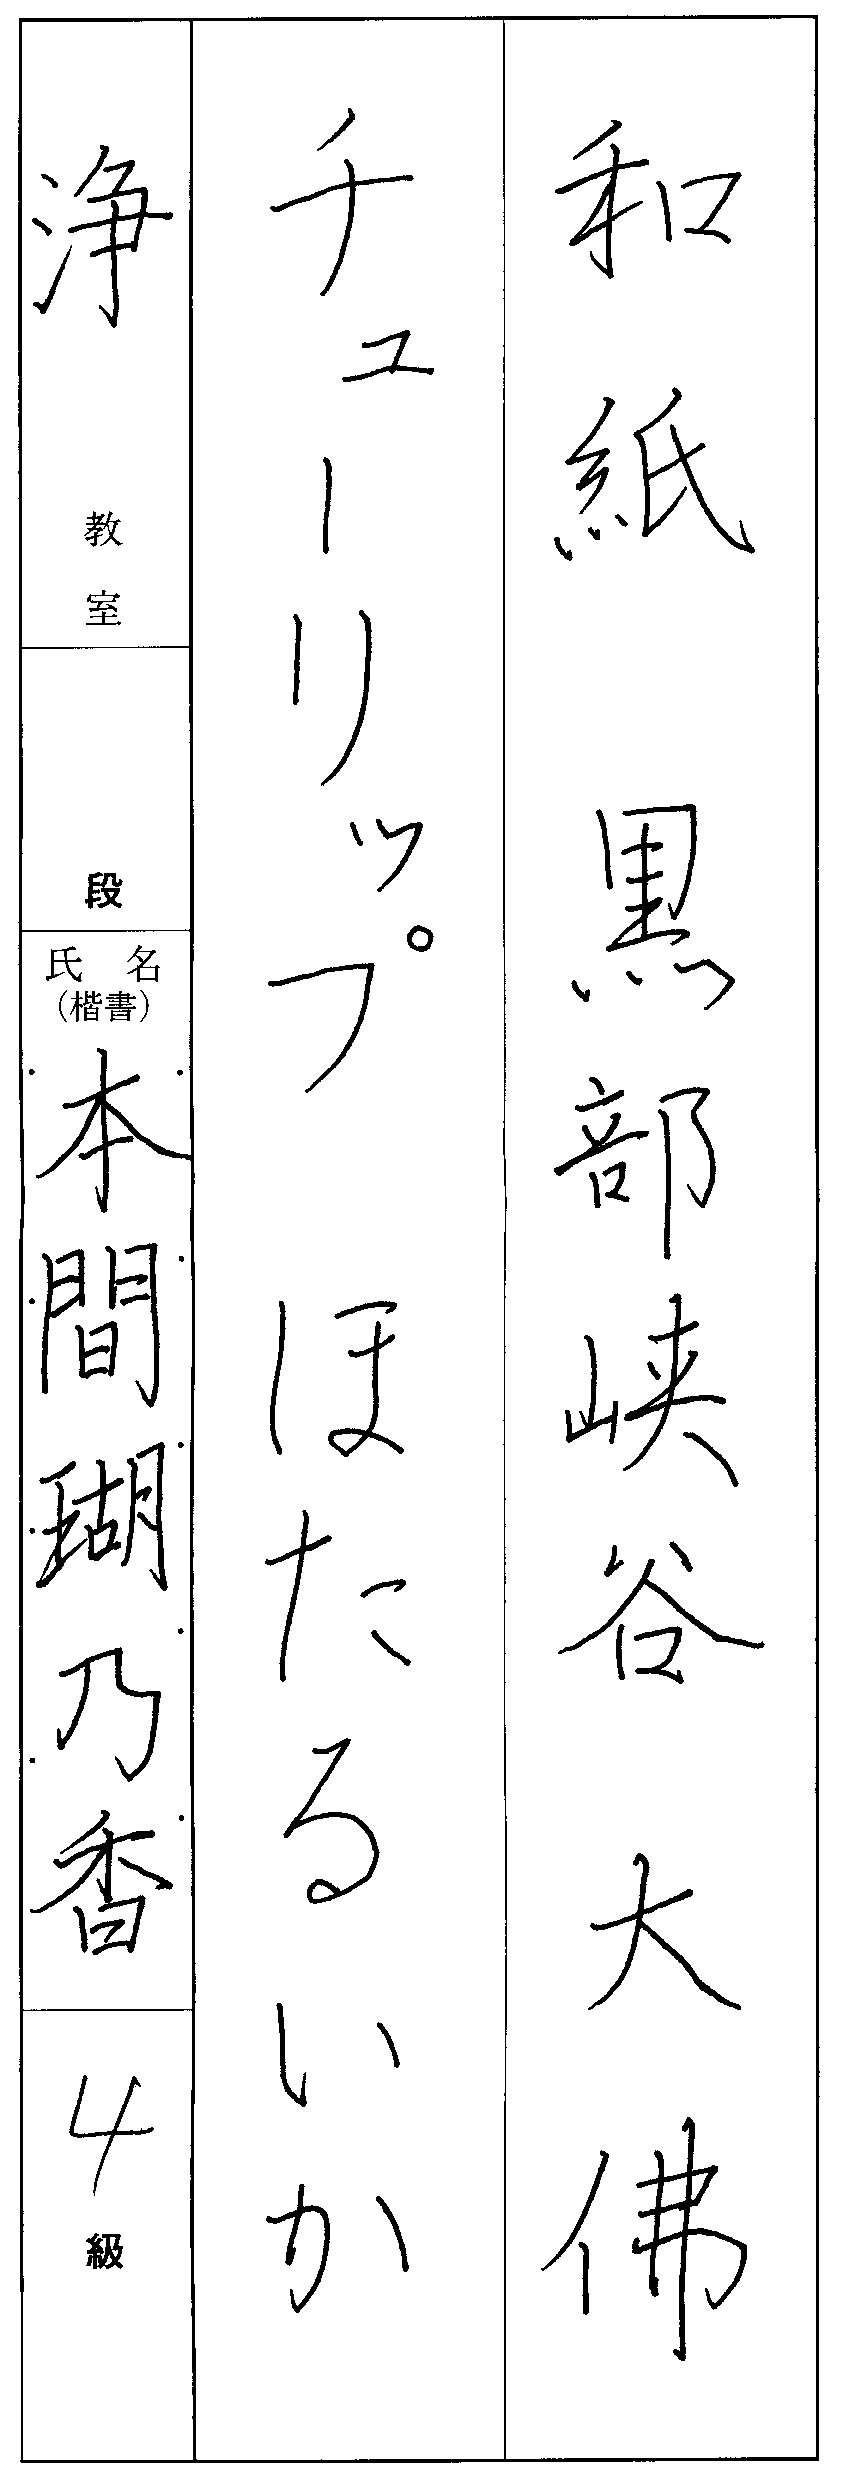 和紙　黒部峡谷　大佛
チューリップ　ほたるいか
浄　教室
段
氏名
(楷書)
本間瑚乃香
4級